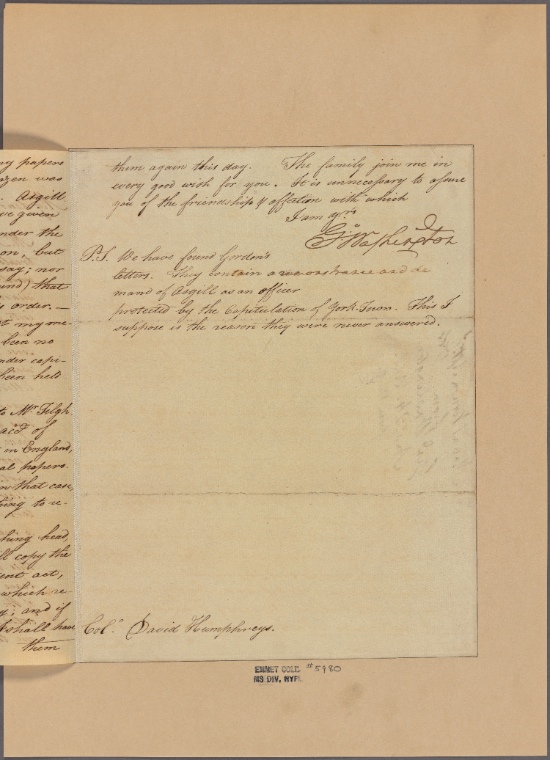 ny papers
ozen was
. Asgill
ve given
nder the
on, but
say; nor
und) that
s order.—
t my me-
been no
nder cape-
been held
to Mr. Tilgh
acct. of
in England,
al papers
n that case,
hing to re-
hing head,
ll copy the
ent act,
which re-
g; and if
I shall have
them
them again this day. The family join me in
every good wish for you. It is unnecessary to assure
you of the friendship & affection with which
I am yrs
Go: Washington
P.S. We have found Gordon's
letters. They contain a remonstrance and de
mand of Asgill as an officer
protected by the Capitulation of York-Town. This I
suppose is the reason they were never answered.
Colo. David Humphreys.
EMMET COLL. #5980
MS DIV, NYPL